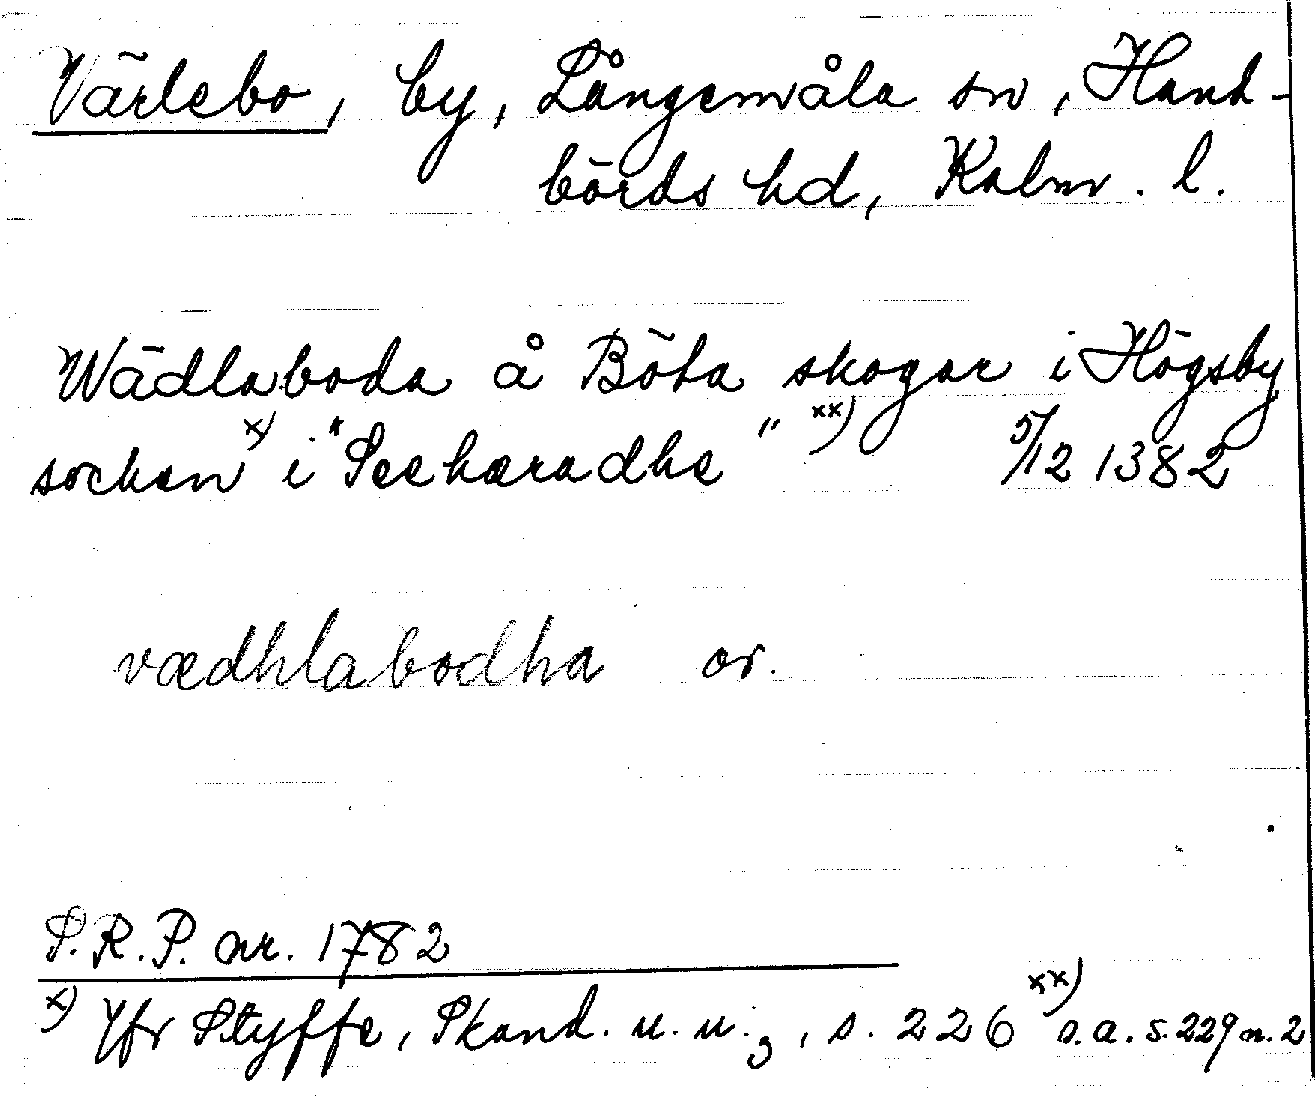 Värlebo, by, Långemåla sn, Hand-
börds hd, Kalm. l.
Wädlaboda å Böta skogar i Högsby
socken x) i "Seehæradhe" xx) 5/12 1382
vædhlabodha or.
S.R.P. nr. 1782
x) Jfr Styffe, Skand. u. u. 3, s. 226 xx) s.a. s. 229 n. 2